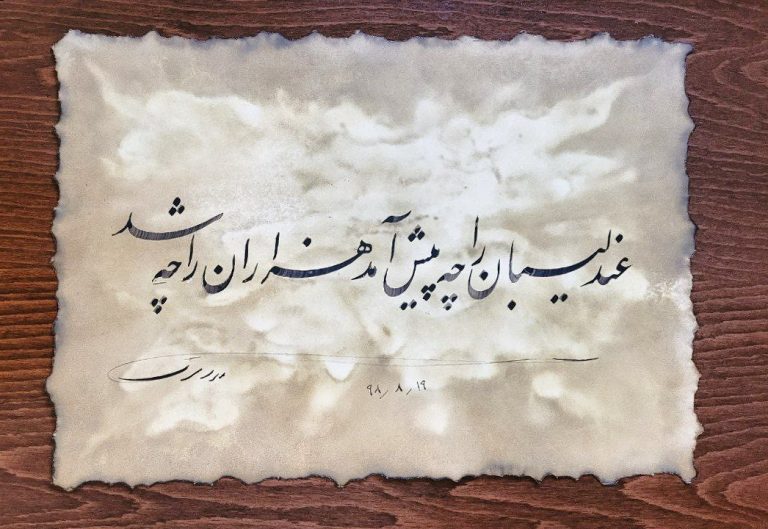 عندلیبان را چه پیش آمد هزاران را چه شد
۹۸/۸/۱۹